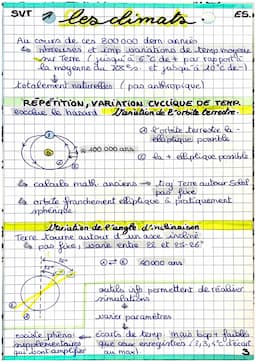 SVT
les climats.
ES.
Au cours de ces 800 000 dern années
↳ nbreuses et imp variations de temp moyenne
sur Terre (jusqu'à 6°C de + par rapport à
la moyenne du XXe s. et jusqu'à 10°C de -)
↓ totalement naturelles (pas anthropique)
REPETITION, VARIATION CYCLIQUE DE TEMP.
exclue le hasard
Variation de l'orbite terrestre.
① l'orbite terrestre la -
elliptique possible
100 000 ans
② la + elliptique possible
↳ calculs math anciens → traj Terre autour Soleil
pas fixe
↳ orbite franchement elliptique à pratiquement
sphérique
Variation de l'angle d'inclinaison
Terre tourne autour d'un axe incliné
↳ pas fixe : varie entre 22 et 25°
① ⇄ ② 40000 ans
outils info permettent de réaliser
simulations
↓
varier paramètres
↓
existe phéno
supplémentaire
qui vont amplifier
← écarts de temp, mais bcp + faibles
que ceux enregistrés (2, 3, 4°C d'écart
au max).
3